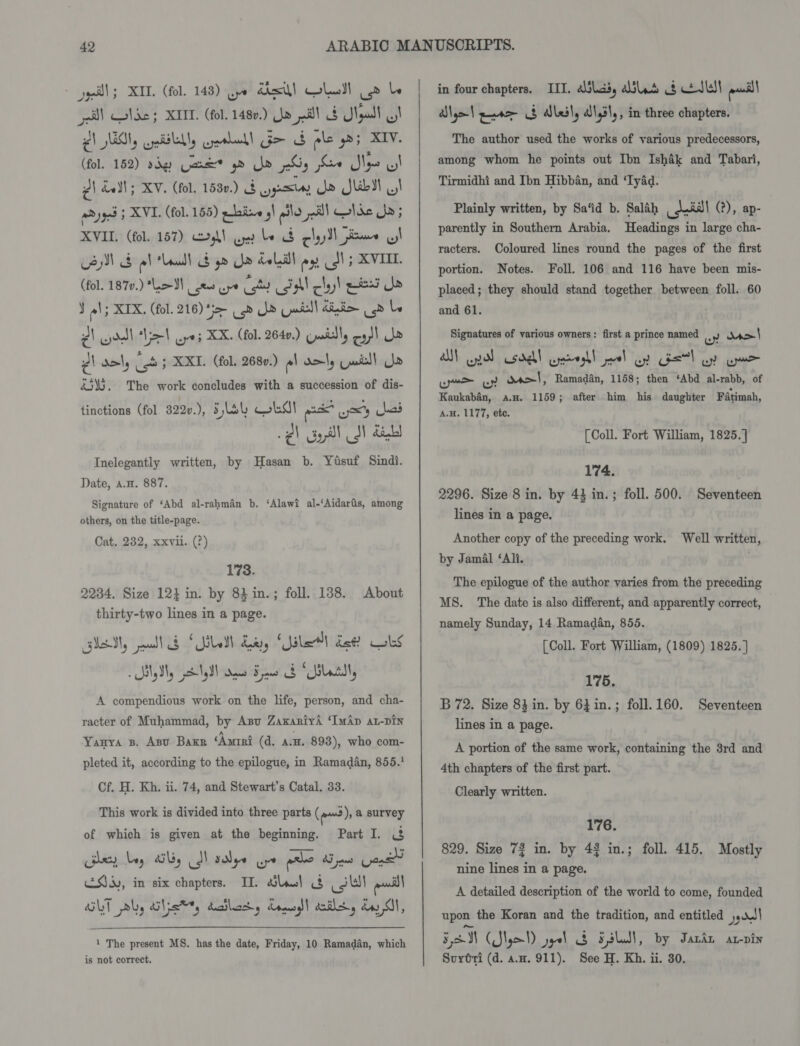 42
ARABIC MANUSCRIPTS.
ما هى الاسباب المنجئة من XII. (fol. 143) ; القبور
ان السؤال فى القبر هل XIII. (fol. 148v.) ; عذاب القبر
هو عام فى حق المسلمين والمنافقين والكفار الخ ; XIV.
(fol. 152) ان سؤال منكر ونكير هل هو مختص بهذه
الامة الخ ; XV. (fol. 153v.) ان الاطفال هل يمتحنون فى
قبورهم ; XVI. (fol. 155) هل عذاب القبر دائم او منقطع ;
XVII. (fol. 157) ان مستقر الارواح فى ما بين الموت
الى يوم القيامة هل هو فى السماء ام فى الارض ; XVIII.
(fol. 187v.) هل تنتفع ارواح الموتى بشئ من سعى الاحياء
ام لا ; XIX. (fol. 216) ما هى حقيقة النفس هل هى جزء
من اجزاء البدن الخ ; XX. (fol. 264v.) هل الروح والنفس
شئ واحد الخ ; XXI. (fol. 268v.) هل النفس واحد ام
ثلاثة. The work concludes with a succession of dis-
tinctions (fol 322v.), فصل ونحن نختم الكتاب باشارة
لطيفة الى الفروق الخ.
Inelegantly written, by Hasan b. Yūsuf Sindī.
Date, A.H. 887.
Signature of ‘Abd al-raḥmān b. ‘Alawī al-‘Aidarūs, among
others, on the title-page.
Cat. 232, xxvii. (?)
173.
2234. Size 12¼ in. by 8¼ in.; foll. 138. About
thirty-two lines in a page.
كتاب بهجة المحافل، وبغية الاماثل، فى السير والاخلاق
والشمائل، فى سيرة سيد الاواخر والاوائل.
A compendious work on the life, person, and cha-
racter of Muḥammad, by Abū Zakariyā ‘Imād al-dīn
Yaḥya b. Abū Bakr ‘Āmirī (d. A.H. 893), who com-
pleted it, according to the epilogue, in Ramaḍān, 855.¹
Cf. H. Kh. ii. 74, and Stewart's Catal. 33.
This work is divided into three parts (قسم), a survey
of which is given at the beginning. Part I. فى
تلخيص سيرته صلعم من مولده الى وفاته وما يتعلق
بذلك, in six chapters. II. القسم الثانى فى اسمائه
الكريمة وخلقته الوسيمة وخصائصه ومعجزاته وباهر آياته,
¹ The present MS. has the date, Friday, 10 Ramaḍān, which
is not correct.
in four chapters. III. القسم الثالث فى شمائله وفضائله
واقواله وافعاله فى جميع احواله, in three chapters.
The author used the works of various predecessors,
among whom he points out Ibn Isḥāk and Tabarī,
Tirmidhī and Ibn Hibbān, and ‘Iyāḍ.
Plainly written, by Sa‘īd b. Salāh الفقيلى (?), ap-
parently in Southern Arabia. Headings in large cha-
racters. Coloured lines round the pages of the first
portion. Notes. Foll. 106 and 116 have been mis-
placed; they should stand together between foll. 60
and 61.
Signatures of various owners: first a prince named احمد بن
حسن بن اسحق بن امير المومنين المهدى لدين الله
احمد بن حسن, Ramaḍān, 1158; then ‘Abd al-rabb, of
Kaukabān, A.H. 1159; after him his daughter Fāṭimah,
A.H. 1177, etc.
[Coll. Fort William, 1825.]
174.
2296. Size 8 in. by 4¾ in.; foll. 500. Seventeen
lines in a page.
Another copy of the preceding work. Well written,
by Jamāl ‘Alī.
The epilogue of the author varies from the preceding
MS. The date is also different, and apparently correct,
namely Sunday, 14 Ramaḍān, 855.
[Coll. Fort William, (1809) 1825.]
175.
B 72. Size 8¾ in. by 6¼ in.; foll. 160. Seventeen
lines in a page.
A portion of the same work, containing the 3rd and
4th chapters of the first part.
Clearly written.
176.
829. Size 7¾ in. by 4¾ in.; foll. 415. Mostly
nine lines in a page.
A detailed description of the world to come, founded
upon the Koran and the tradition, and entitled البدور
السافرة فى امور (احوال) الآخرة, by Jalāl al-dīn
Suyūṭī (d. A.H. 911). See H. Kh. ii. 30.